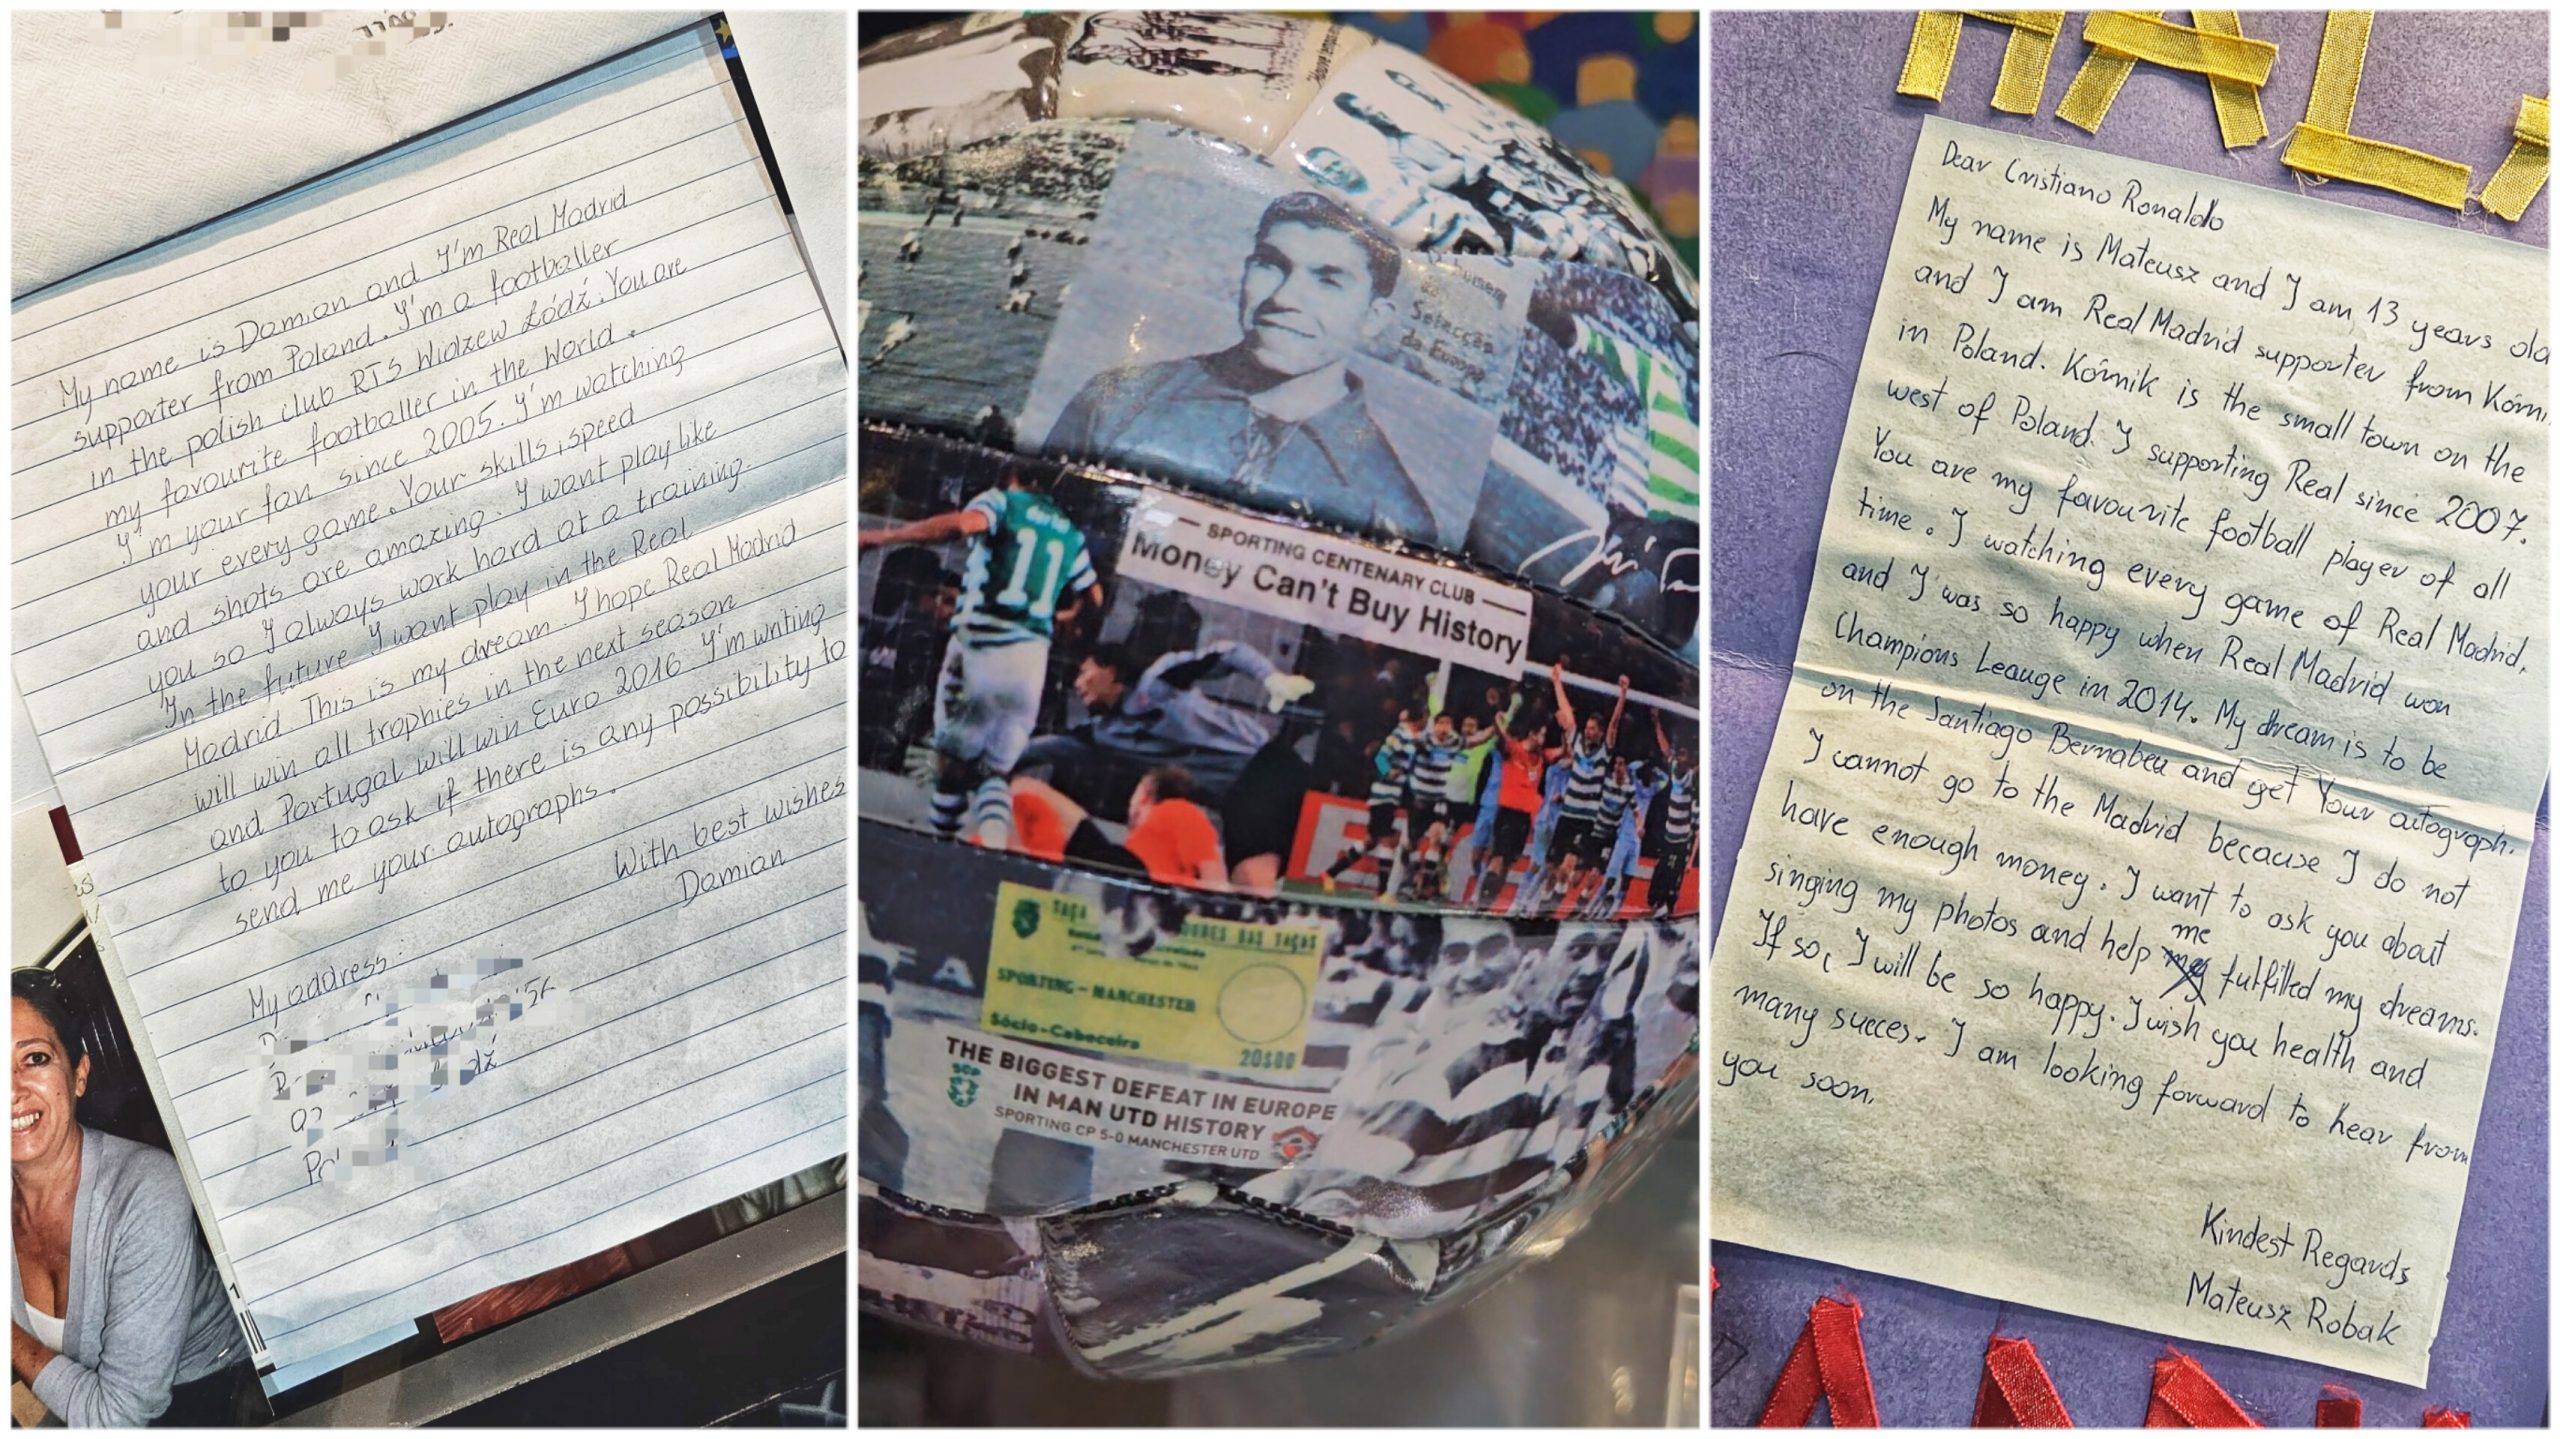 My name is Damian and I'm Real Madrid
supporter from Poland. I'm a footballer
in the polish club RTS Widzew Łódź. You are
my favourite footballer in the World.
I'm your fan since 2005. I'm watching
your every game. Your skills, speed
and shots are amazing. I want play like
you so I always work hard at a training.
In the future I want play in the Real
Madrid. This is my dream. I hope Real Madrid
will win all trophies in the next season
and Portugal will win Euro 2016. I'm writing
to you to ask if there is any possibility to
send me your autographs.
With best wishes
Damian
My address:
1
Selecção
da Europa
11
SPORTING CENTENARY CLUB
Money Can't Buy History
TAÇA
DAS TAÇAS
SPORTING - MANCHESTER
Sócio-Cabeceira
20$00
THE BIGGEST DEFEAT IN EUROPE
SCP
IN MAN UTD HISTORY
SPORTING CP 5-0 MANCHESTER UTD
HAL
Dear Cristiano Ronaldo
My name is Mateusz and I am 13 years old
and I am Real Madrid supporter from
in Poland. Kórnik is the small town on the
west of Poland. I supporting Real since 2007.
You are my favourite football player of all
time. I watching every game of Real Madrid,
and I was so happy when Real Madrid won
Champions Leauge in 2014. My dream is to be
on the Santiago Bernabeu and get Your autograph.
I cannot go to the Madrid because I do not
have enough money. I want to ask you about
singing my photos and help me fulfilled my dreams.
If so, I will be so happy. I wish you health and
many succes. I am looking forward to hear from
you soon.
Kindest Regards
Mateusz Robak